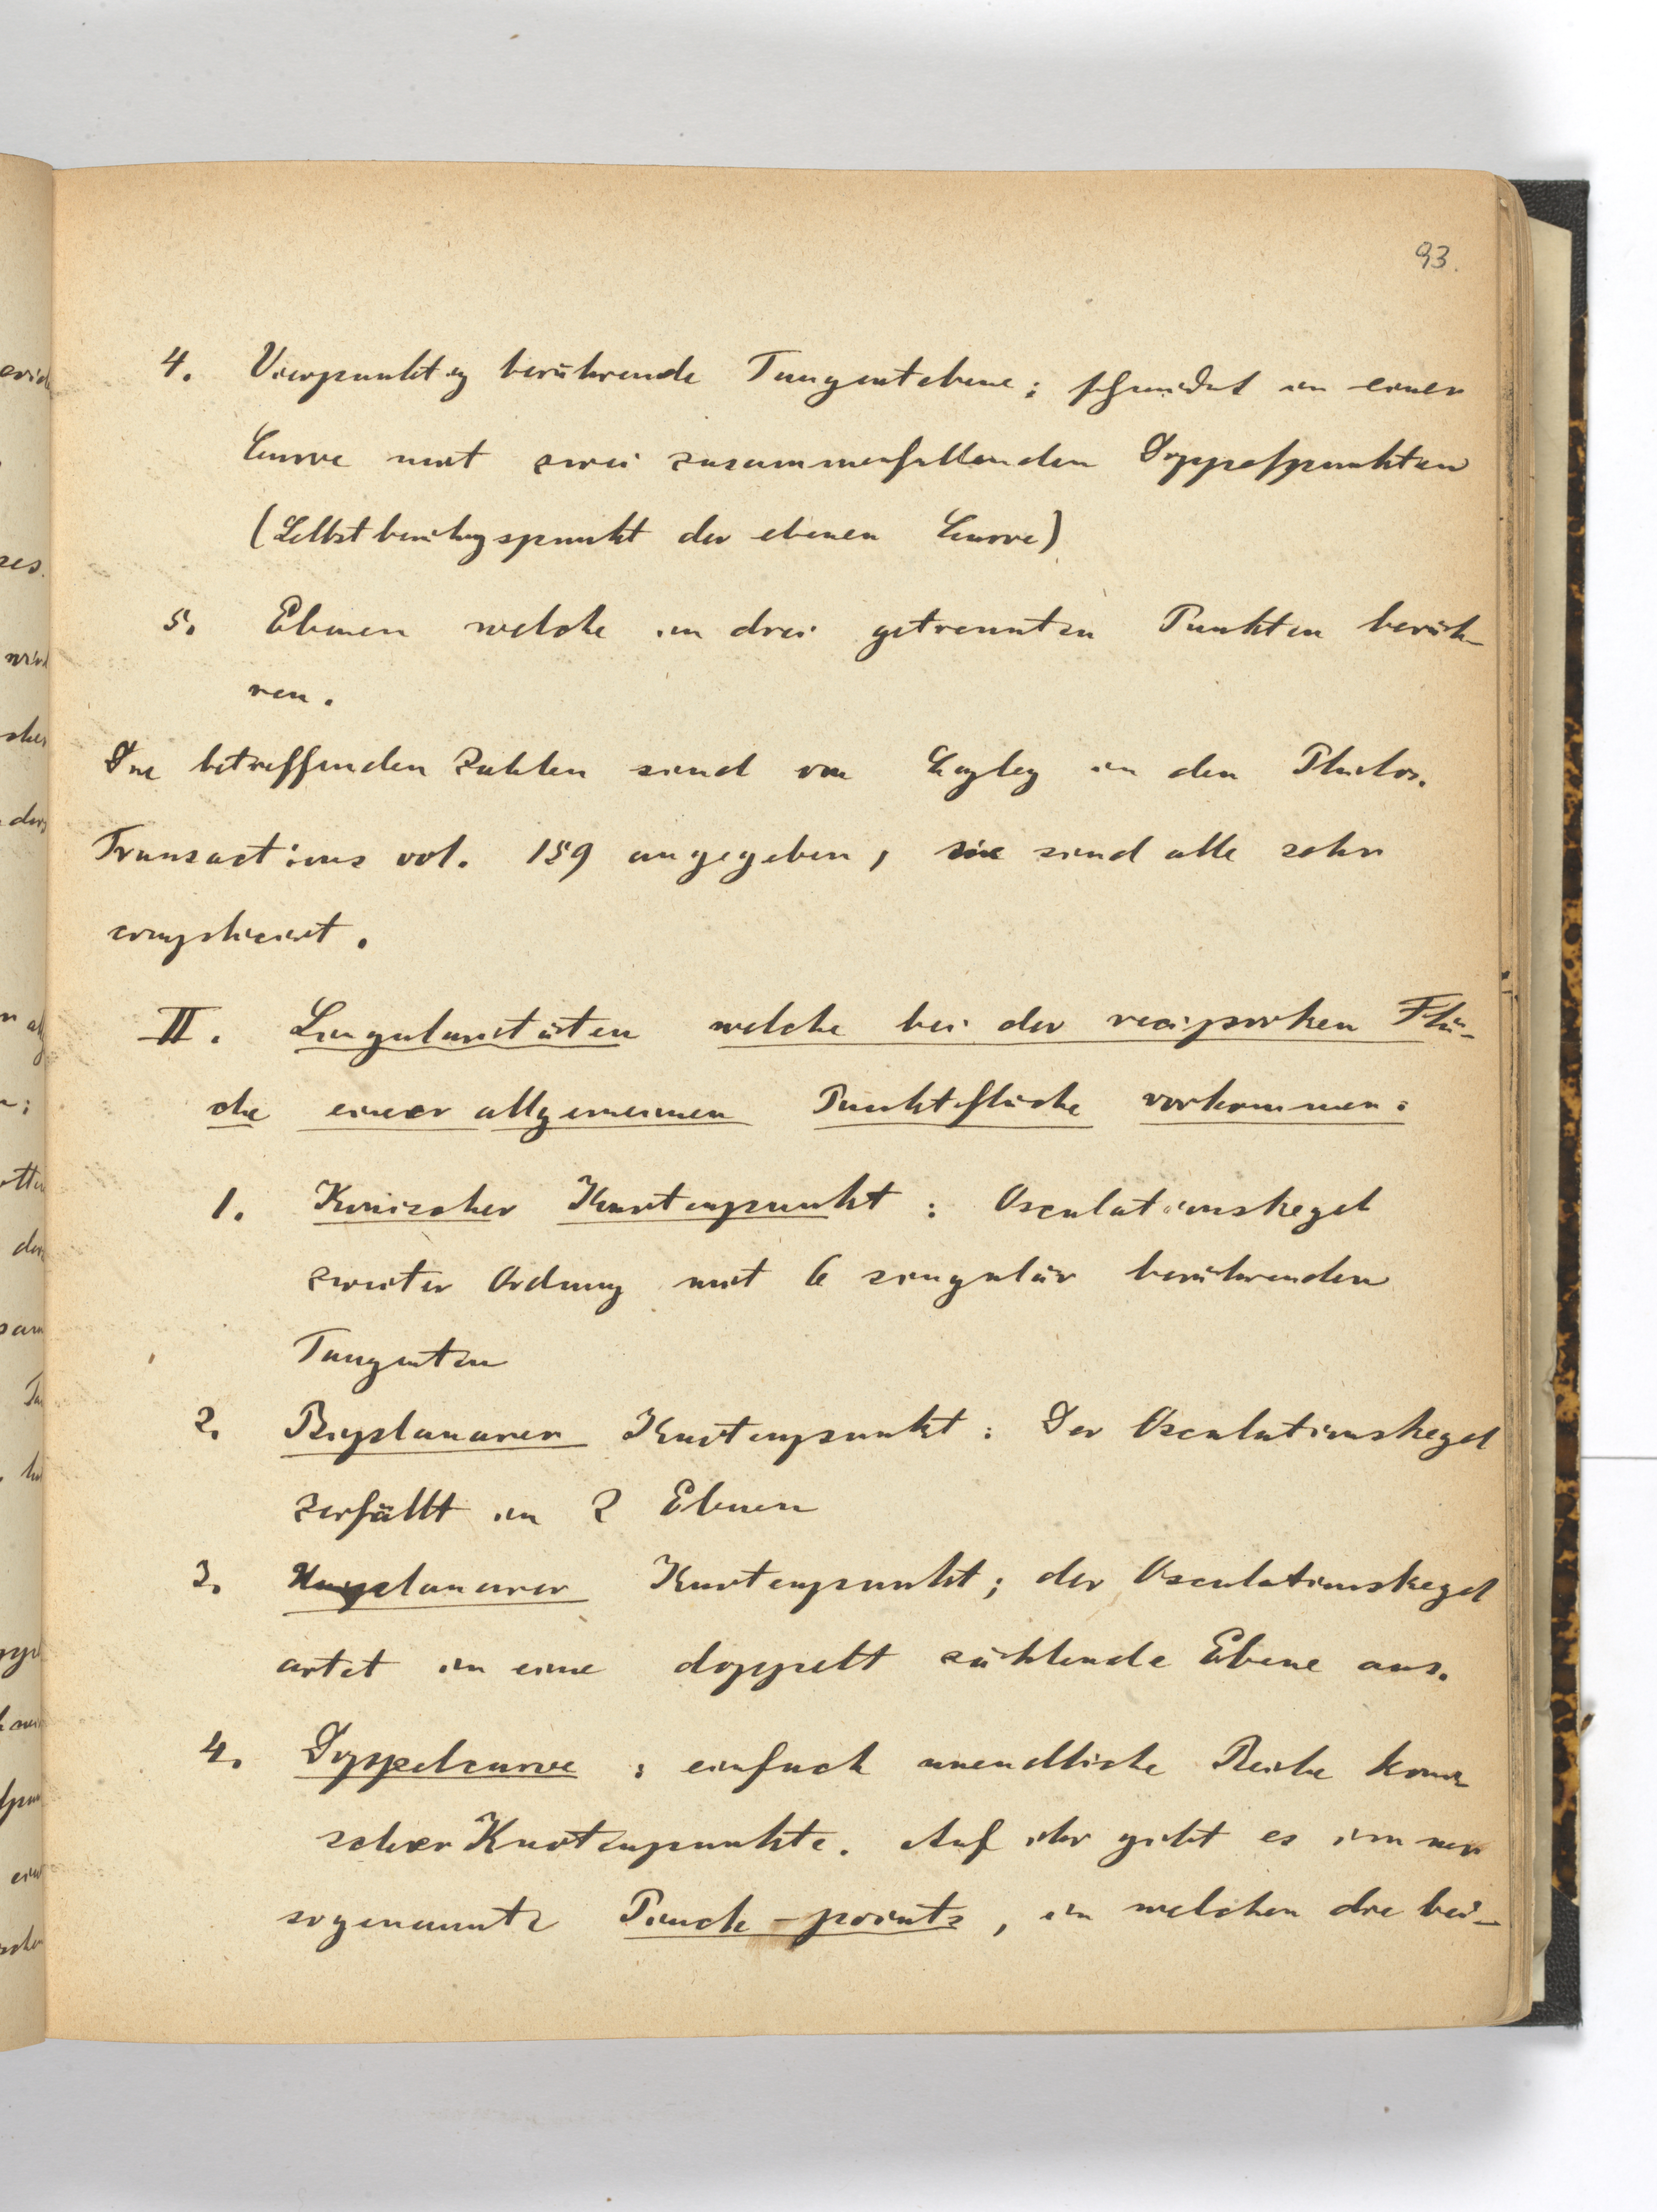 93.
4. Vierpunktig berührende Tangentebene; schneidet in einer
Curve mit zwei zusammenfallenden Doppelpunkten
(Selbstberührgspunkt der ebenen Curve)
5. Ebenen welche in drei getrennten Punkten berüh-
ren.
Die betreffenden Zahlen sind von Cayley in den Philos.
Transactions vol. 159 angegeben, sie sind alle sehr
complicirt.
II. Singularitäten welche bei der reciproken Flä-
che einer allgemeinen Punktfläche vorkommen:
1. Konischer Knotenpunkt: Osculationskegel
zweiter Ordnung mit 6 singulär berührenden
Tangenten
2. Biplanarer Knotenpunkt: Der Osculationskegel
zerfällt in 2 Ebenen
3. Uniplanarer Knotenpunkt; der Osculationskegel
artet in eine doppelt zählende Ebene aus.
4. Doppelcurve; einfach unendliche Reihe koni
scher Knotenpunkte. Auf ihr gibt es immer
sogenannte Pinch-points, in welchen die bei-